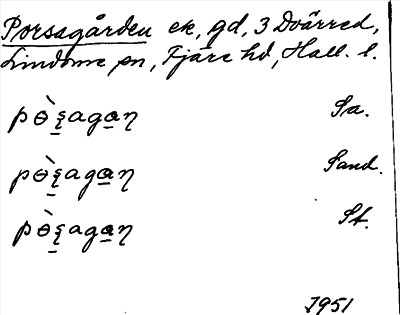 Porsagården ek, gd, 3 Dvärred,
Lindome sn, Fjäre hd, Hall. l.
pɵ̀ʂagan Sa.
pɵ̀ʂagan Sand.
pɵ̀ʂagan St.
1951